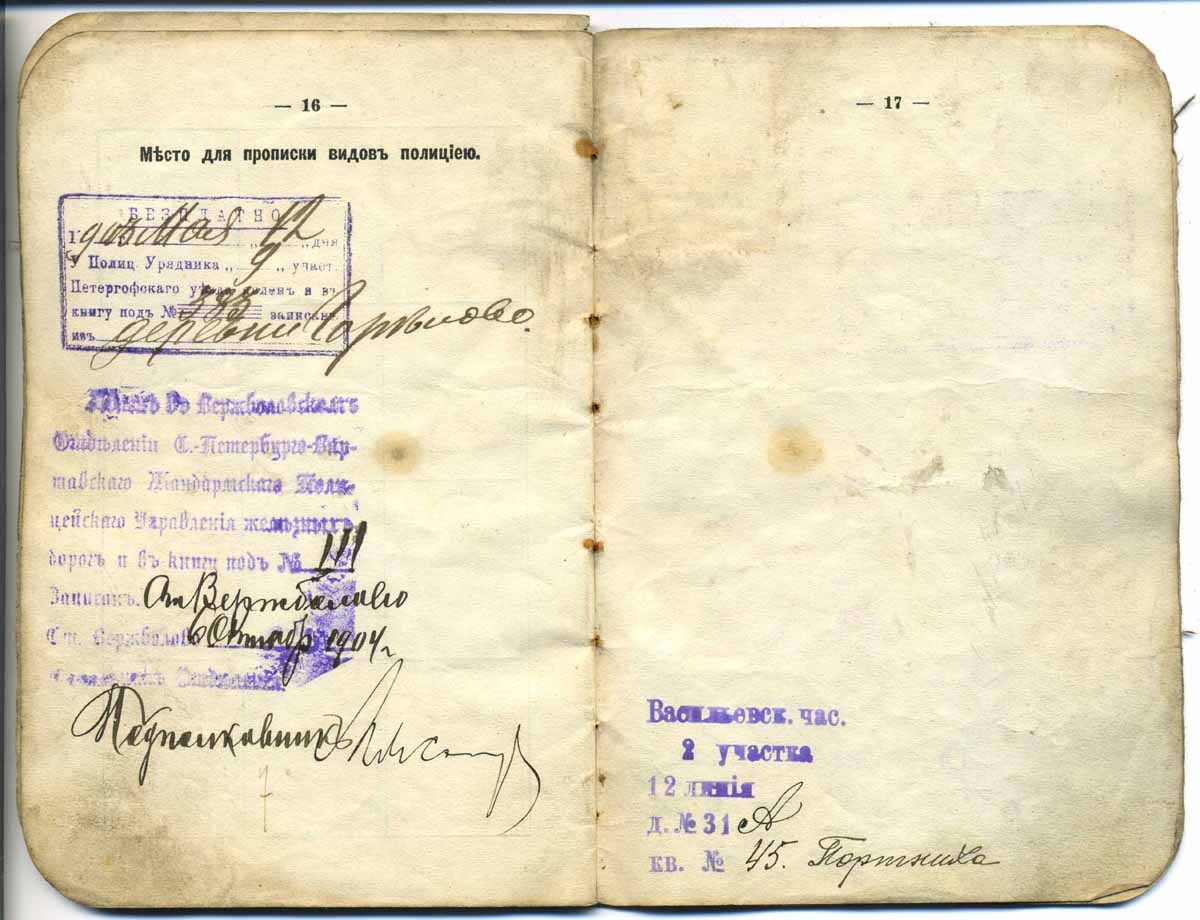 — 16 —
Мѣсто для прописки видовъ полиціею.
БЕЗПЛАТНО
1903 Мая „12„ дня
У Полиц. Урядника „9„ участ.
Петергофскаго уѣзда явленъ и въ
книгу подъ № 383 записанъ
изъ деревни Горѣлово.
Въ Вержболовскомъ
Отдѣленіи С.-Петербурго-Вар-
шавскаго Жандармскаго Поли-
цейскаго Управленія желѣзныхъ
дорогъ и въ книгу подъ №
Записанъ. Ст. Вержболово
Ст. Вержболово 6 Октябр 1904 г
Подполковникъ
— 17 —
Васильевск. час.
2 участка
12 линія
д. № 31 А
кв. № 45. Портниха